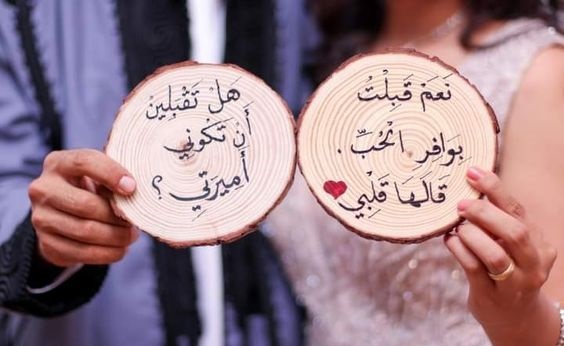 هَلْ تَقْبَلِين
أَن تَكُوني
أَميرَتي ؟
نَعَمْ قَبِلْتُ
بوَافِر الْحُبِّ .
قَالَهَا قَلْبِي